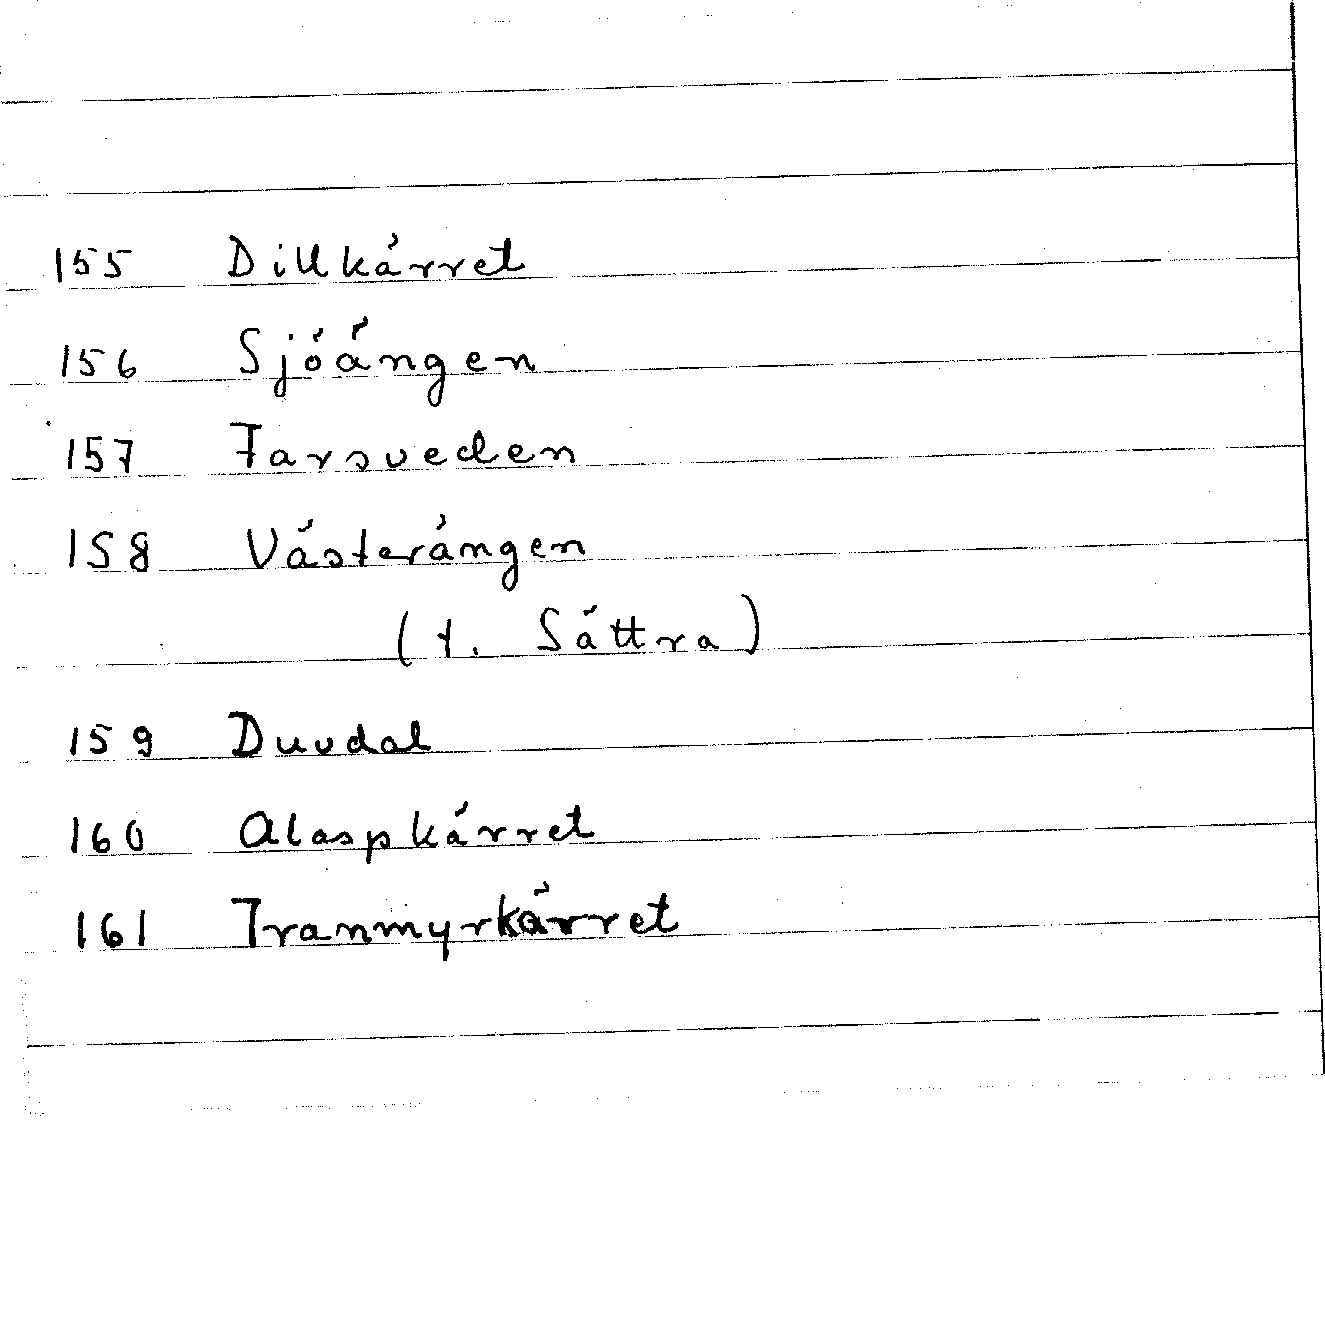 155 Dillkärret
156 Sjöängen
157 Farsveden
158 Västerängen
(t. Sättra)
159 Duvdal
160 Alaspkärret
161 Tranmyrkärret